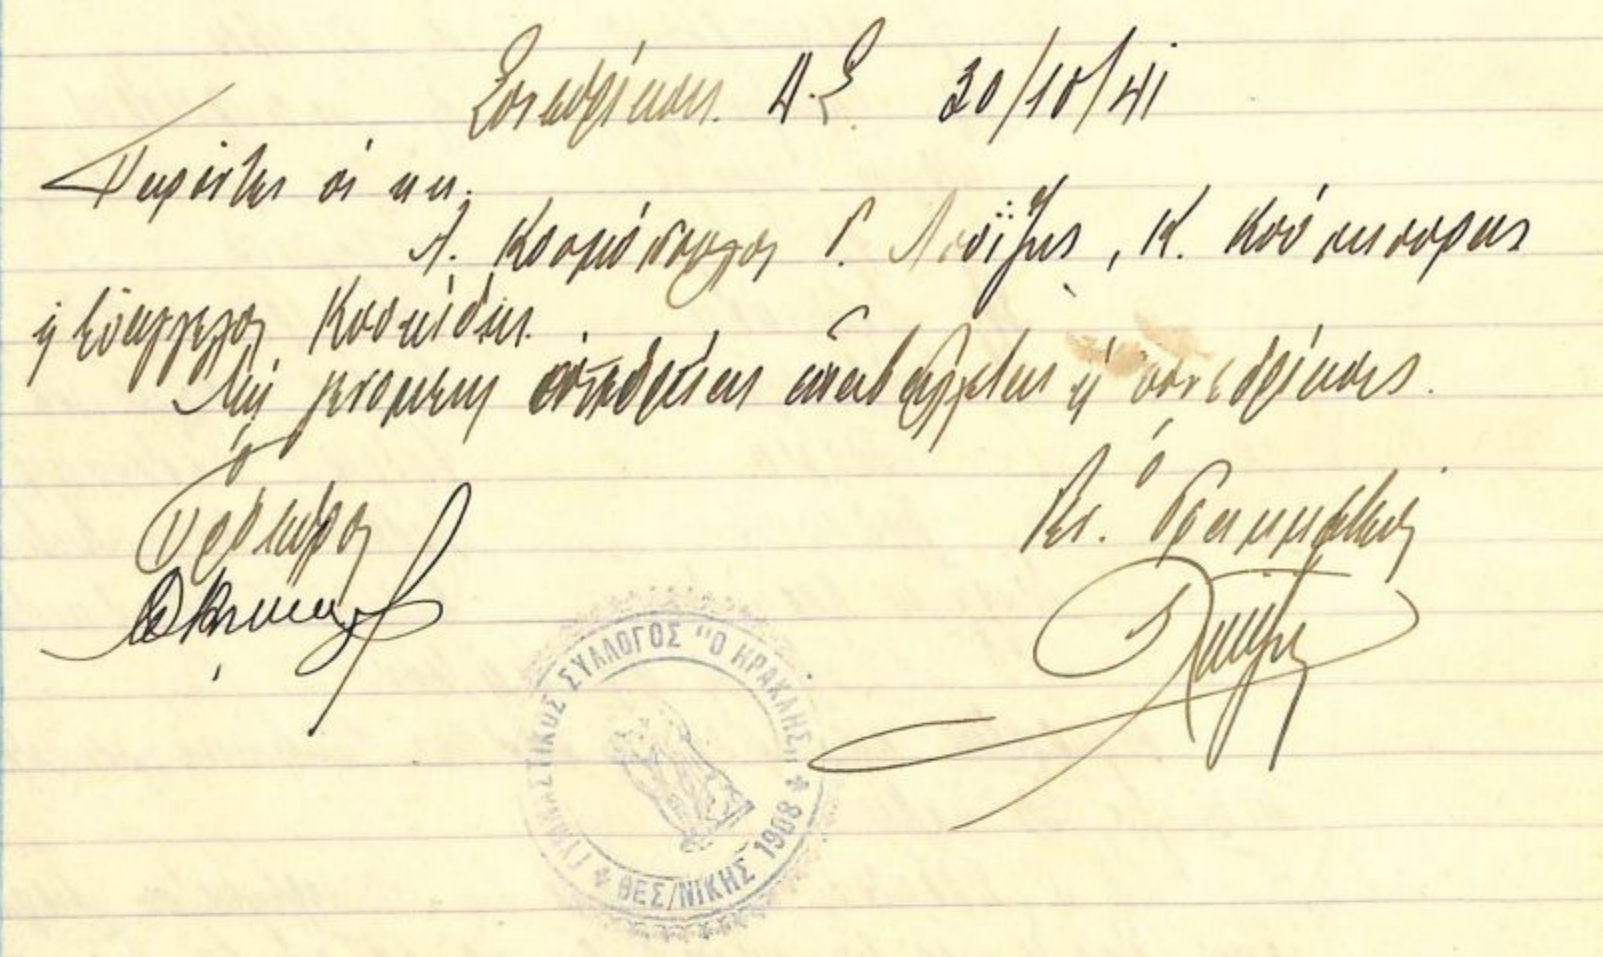 Συνεδρίασις Δ.Σ. 30/10/41
Παρόντες οἱ κκ.
Λ. Κοσμόπουλος Γ. Λοΐζης, Κ.
ἡ Εὐάγγελος
Μὴ γενομένης ἀναβάλλεται ἡ συνεδρίασις.
ὁ
Πρόεδρος
ὁ
Γεν. Γραμματεύς
ΓΥΜΝΑΣΤΙΚΟΣ ΣΥΛΛΟΓΟΣ "Ο ΗΡΑΚΛΗΣ" ΘΕΣ/ΝΙΚΗΣ 1908